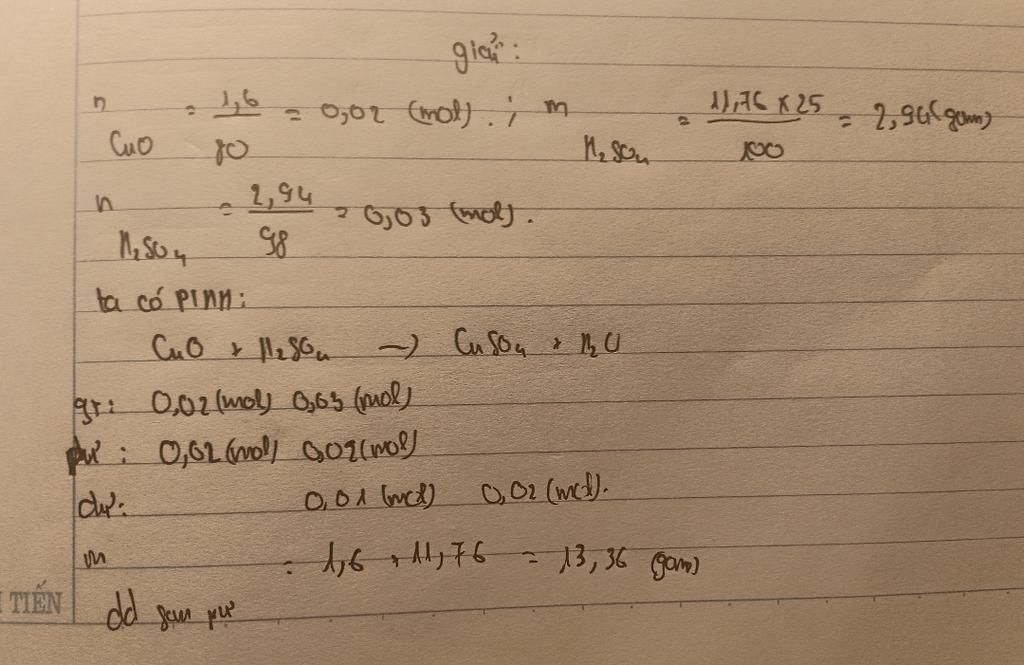 giải:
n CuO = 1,6/80 = 0,02 (mol). ; m H₂SO₄ = 11,76 x 25/100 = 2,94 (gam)
n H₂SO₄ = 2,94/98 = 0,03 (mol).
ta có PTHH:
CuO + H₂SO₄ → CuSO₄ + H₂O
gt: 0,02 (mol) 0,03 (mol)
pư: 0,02 (mol) 0,02 (mol)
dư: 0,01 (mol) 0,02 (mol).
m dd sau pư = 1,6 + 11,76 = 13,36 (gam)
TIẾN